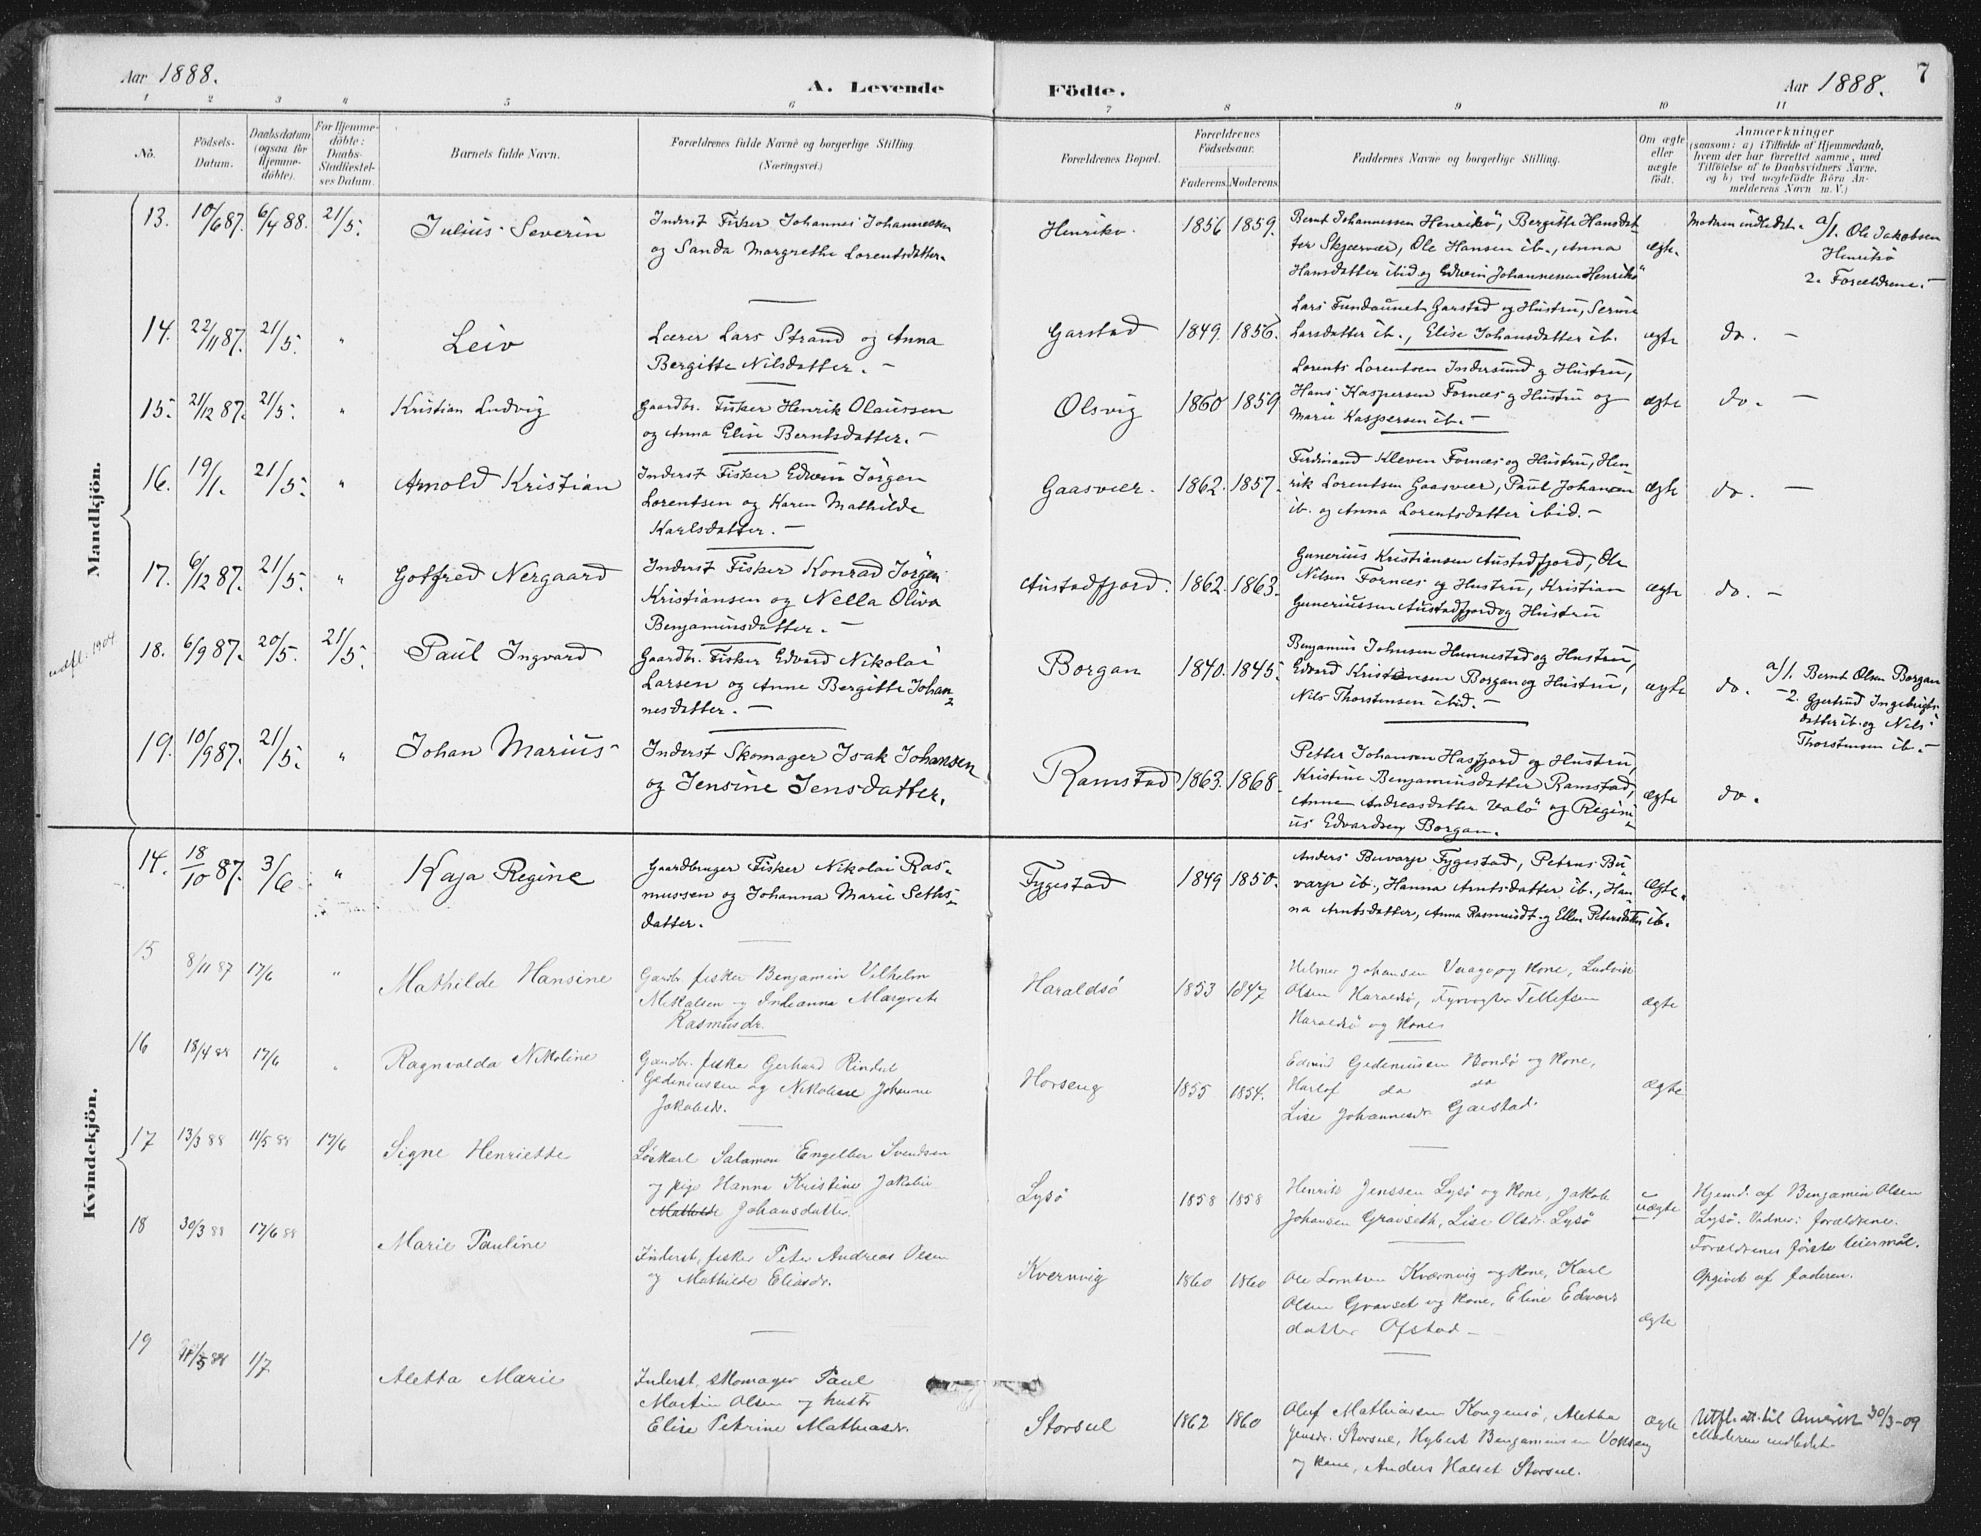 Aar 1888.
A. Levende Födte.
Aar 1888.
7
1 2 3 4 5 6 7 8 9 10 11
No.
Födsels-Datum.
Daabsdatum (ogsaa for Hjemme-döbte).
For Hjemme-döbte: Daabs-Stadfæstel-ses Datum.
Barnets fulde Navn.
Forældrenes fulde Navne og borgerlige Stilling (Næringsvei.)
Forældrenes Bopæl.
Forældrenes Födselsaar.
Faderens. Moderens.
Faddernes Navne og borgerlige Stilling.
Om ægte eller uægte födt.
Anmærkninger
(saasom: a) i Tilfælde af Hjemmedaab,
hvem der har forrettet samme, med
Tilföielse af to Daabsvidners Navne,
og b) ved uægtefödte Börn An-
melderens Navn m. V.)
Mandkjön.
13. 10/6 87. 6/4 88. 21/5. Julius Severin
Inderst Fisker Johannes Johannessen
og Sanda Margrethe Lorentsdatter.
Henriksö. 1856 1859.
Bernt Johannessen Henriksö, Bergitte Hansdat
ter Skjærvær, Ole Hansen ib., Anna
Hansdatter ibid og Edwin Johannessen Henriksö
ægte.
Modren indledet.
a/1. Ole Jakobsen
Henriksö
2. Forældrene. —
14. 22/11 87. 21/5. " Leiv
Lærer Lars Strand og Anna
Bergitte Nilsdatter. —
Garstad 1849. 1856.
Lars Fundaunet Garstad og Hustru, Serine
Larsdatter ib., Elise Johansdatter ib.
ægte do. —
15. 21/12 87. 21/5. " Kristian Ludvig
Gaardbr. Fisker Henrik Olaussen
og Anna Elise Berntsdatter. —
Olsvig 1860 1859
Lorents Lorentsen Indersund og Hustru,
Hans Kaspersen Fornæs og Hustru og
Marie Kaspersen ib. —
ægte do. —
16. 19/1. 21/5. " Arnold Kristian
Inderst Fisker Edwin Jörgen
Lorentsen og Karen Mathilde
Karlsdatter. —
Gaasvær. 1862. 1857.
Ferdinand Kleven Fornæs og Hustru, Hen-
rik Lorentsen Gaasvær, Paul Johansen
ib. og Anna Lorentsdatter ibid. —
ægte do. —
17. 6/12 87. 21/5. " Gotfred Nergaard
Inderst Fisker Konrad Jörgen
Kristiansen og Nella Oliva
Benjaminsdatter. —
Austadfjord. 1862. 1863.
Gunerius Kristiansen Austadfjord, Ole
Nilsen Fornæs og Hustru, Kristian
Guneriussen Austadfjord og Hustru
ægte do. —
udfl. 1904
18. 6/9 87. 20/5. 21/5. Paul Ingvard
Gaardbr. Fisker Edvard Nikolai
Larsen og Anne Bergitte Johan-
nesdatter. —
Borgan 1840. 1845.
Benjamin Johnsen Hunnestad og Hustru,
Edvard Kristensen Borgan og Hustru,
Nils Thorstensen ibid. —
ægte do.
a/1. Bernt Olsen Borgan
—2. Gjertrud Ingebrigts-
datter ib. og Nils
Thorstensen ib. —
19. 10/9 87. 21/5. " Johan Marius
Inderst Skomager Isak Johansen
og Jensine Jensdatter.
Ramstad 1863. 1868.
Petter Johansen Hasfjord og Hustru,
Kristine Benjaminsdatter Ramstad,
Anne Andreasdatter Valö og Regini-
us Edvardsen Borgan.
ægte do.
Kvindekjön.
14. 18/10 87. 3/6 " Kaja Regine
Gaardbruger Fisker Nikolai Ras-
mussen og Johanna Marie Seths-
datter.
Fygestad 1849 1850.
Anders Buvarp Fygestad, Petrus Bu-
varp ib., Hanna Arntsdatter ib., Han-
na Arntsdatter, Anna Rasmusdt. og Ellen Petersdatter ib.
ægte.
15 8/11 87 17/6 " Mathilde Hansine
Gardbr. fisker Benjamin Vilhelm
Mikalsen og Indianna Margrete
Rasmusdr.
Haraldsö 1853 1847
Helmer Johansen Vaagö og Kone, Ludvik
Olsen Haraldsö, Fyrvogter Tellefsen
Haraldsö og Kone
ægte
16 18/4 88 17/6 " Ragnvalda Nikoline
Gardbr. fisker Gerhard Rindal
Gedeniussen og Nikoline Johanne
Jakobsdr.
Horseng 1855 1854.
Edvind Gedeniussen Bondö og Kone,
Harlof do do
Lise Johannesdr. Garstad.
ægte
17 13/3 88 11/5 88 17/6 Signe Henriette
Löskarl Salamon Engelber Svendsen
og pige Hanna Kristine Jakobie
Mathilde Johansdatter.
Lysö 1858 1858
Henrik Jenssen Lysö og Kone, Jakob
Johansen Gravseth, Lise Olsdr. Lysö
uægte
Hjemd. af Benjamin Olsen
Lysö. Vidner: forældrene.
Forældrenes første leiermål.
Opgivet af faderen.
18 30/3 88 17/6 88 Marie Pauline
Inderst, fisker Peter Andreas Olsen
og Mathilde Eliasdr.
Kvernvig 1860 1860
Ole Lorntsen Kværnvig og Kone, Karl
Olsen Gravset og Kone, Eline Edvars
datter Ofstad —
ægte
19 11/5 88 1/7 Aletta Marie
Inderst, skomager Paul
Martin Olsen og hustr
Elise Petrine Mathiasdr.
Storsul 1862 1860
Oluf Mathiasen Kongensö, Aletta
Jensdr. Storsul, Hybert Benjaminsen Vokseng
og Kone, Anders Halset Storsul.
ægte
Utfl. att. til Amerik 30/3-09
Moderen indledet